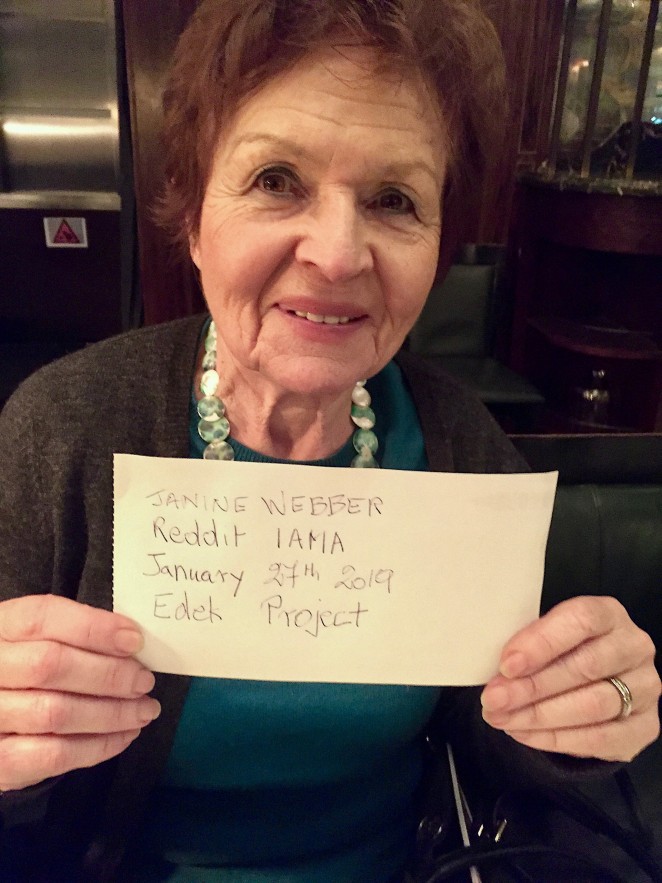 JANINE WEBBER
Reddit IAMA
January 27th 2019
Edek Project